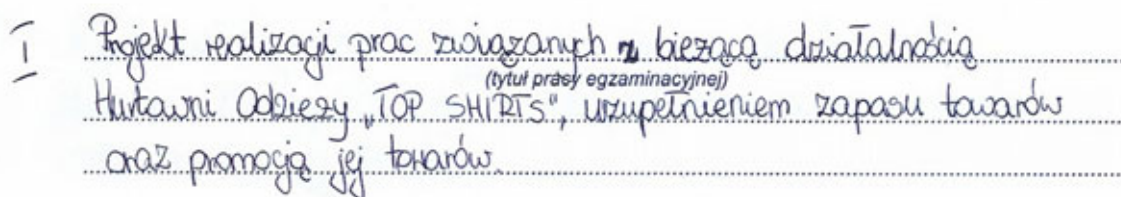 I Projekt realizacji prac związanych z bieżącą działalnością
(tytuł prasy egzaminacyjnej)
Hurtowni Odzieży "TOP SHIRTS", uzupełnieniem zapasu towarów
oraz promocją jej towarów.